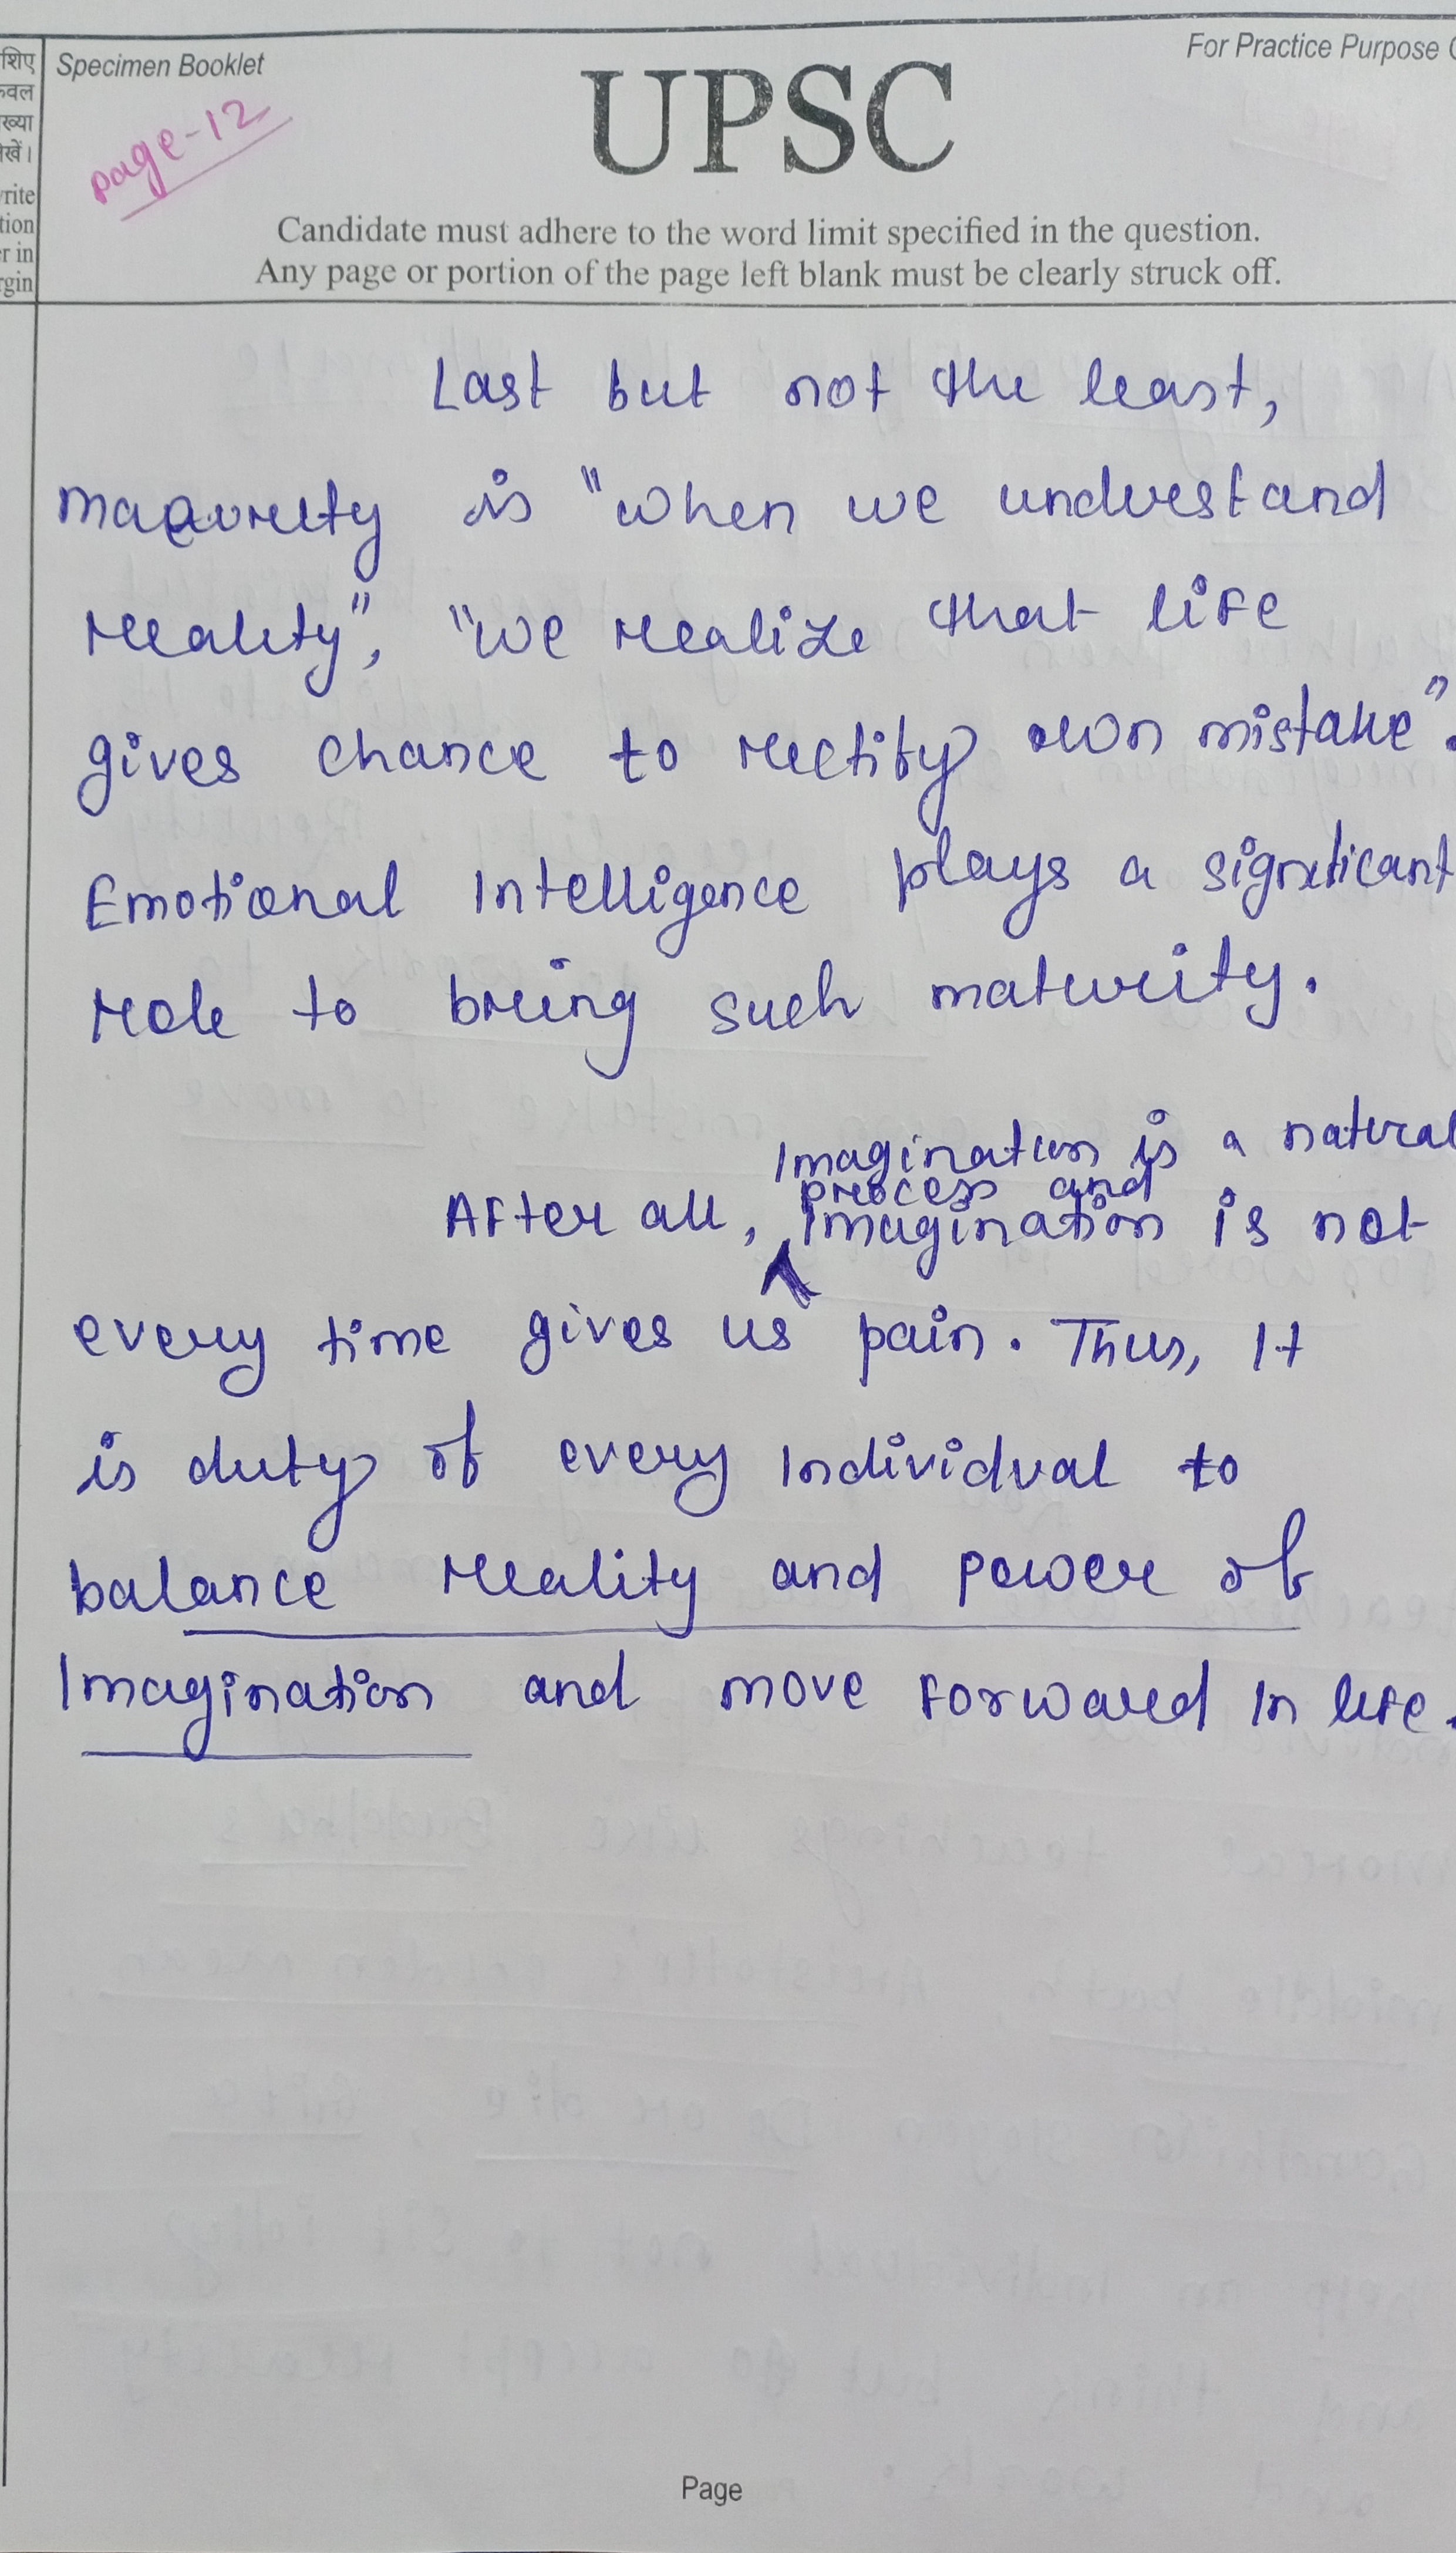 शिए
वल
ख्या
खें।
rite
tion
r in
gin
Specimen Booklet
For Practice Purpose
page-12
UPSC
Candidate must adhere to the word limit specified in the question.
Any page or portion of the page left blank must be clearly struck off.
Last but not the least,
maturity is "when we understand
reality", "we realize that life
gives chance to rectify own mistake".
Emotional Intelligence plays a significant
role to bring such maturity.
Imagination is a natural
process and
After all, Imagination is not
every time gives us pain. Thus, It
is duty of every Individual to
balance reality and power of
Imagination and move forward In life.
Page